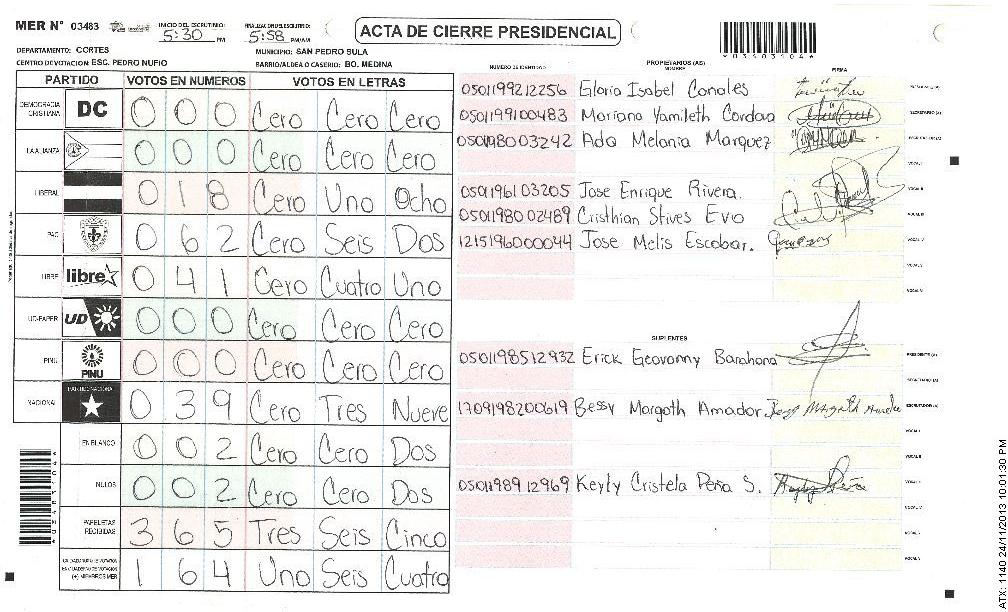 MER N° 03483 INICIO DEL ESCRUTINIO: 5:30 PM FINALIZACION DEL ESCRUTINIO: 5:58 PM/AM
ACTA DE CIERRE PRESIDENCIAL
*03403104*
DEPARTAMENTO: CORTES MUNICIPIO: SAN PEDRO SULA
CENTRO DE VOTACION: ESC. PEDRO NUFIO BARRIO/ALDEA O CASERIO: BO. MEDINA
PARTIDO VOTOS EN NUMEROS VOTOS EN LETRAS
DEMOCRACIA CRISTIANA DC 0 0 0 Cero Cero Cero
LA ALIANZA 0 0 0 Cero Cero Cero
LIBERAL 0 1 8 Cero Uno Ocho
PAC 0 6 2 Cero Seis Dos
LIBRE libre 0 4 1 Cero Cuatro Uno
UD-FAPER UD 0 0 0 Cero Cero Cero
PINU PINU 0 0 0 Cero Cero Cero
NACIONAL PARTIDO NACIONAL 0 3 9 Cero Tres Nueve
EN BLANCO 0 0 2 Cero Cero Dos
NULOS 0 0 2 Cero Cero Dos
PAPELETAS RECIBIDAS 3 6 5 Tres Seis Cinco
(+) MIEMBROS MER 1 6 4 Uno Seis Cuatro
NUMERO DE IDENTIDAD PROPIETARIOS (AS) NOMBRE FIRMA
0501199212256 Gloria Isabel Canales PRESIDENTE (A)
0501199100483 Mariana Yamileth Cordova SECRETARIO (A)
0501198003242 Ada Melania Marquez ESCRUTADOR (A)
VOCAL I
0501196103205 Jose Enrique Rivera. VOCAL II
0501198002489 Cristhian Stives Evo VOCAL III
1215196000044 Jose Melis Escobar. VOCAL IV
VOCAL V
VOCAL VI
SUPLENTES
0501198512932 Erick Geovanny Barahona PRESIDENTE (A)
SECRETARIO (A)
1709198200619 Bessy Margoth Amador ESCRUTADOR (A)
VOCAL I
VOCAL II
0501198912969 Keyly Cristela Peña S.
ATX: 1140 24/11/2013 10:01:30 PM